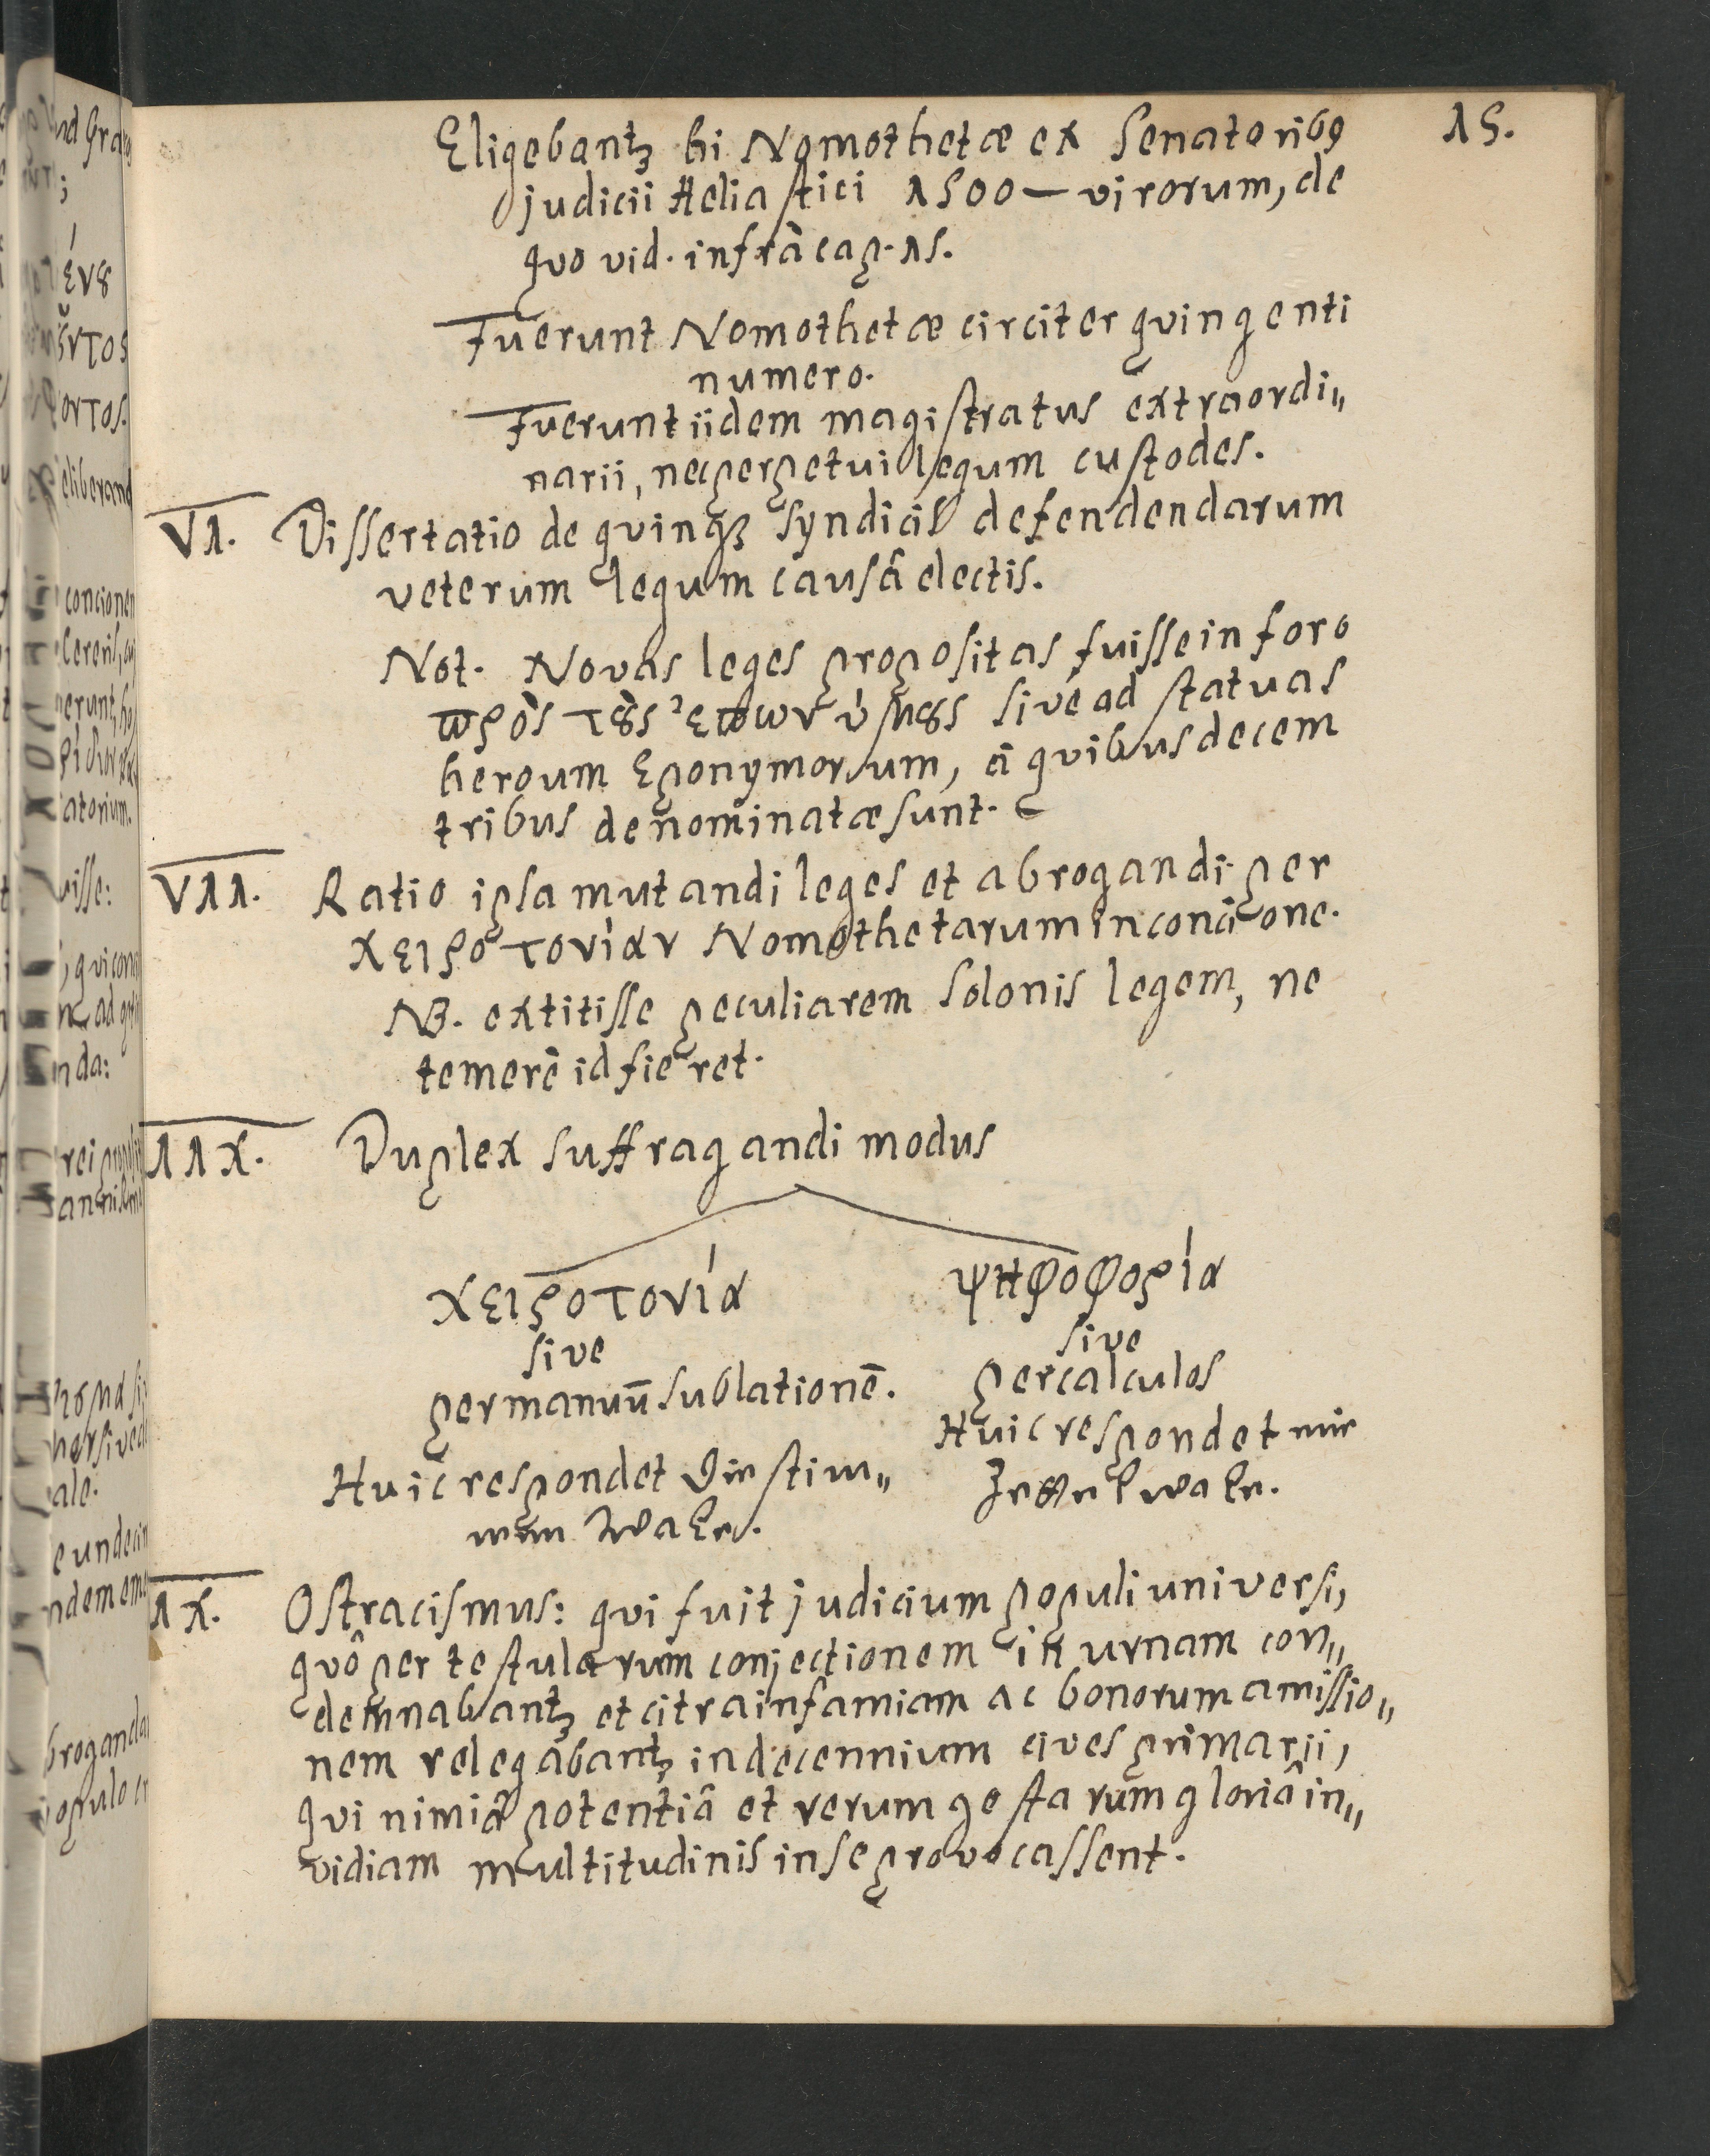 Eligebantꝫ hi Nomothetæ ex Senatoribꝰ 15.
judicii Heliastici 1500 — virorum, de
quo vid. infrâ cap. 15.
Fuerunt Nomothetæ circiter quingenti
numero.
Fuerunt iidem magistratus extraordi„
narii, nec perpetui legum custodes.
VI. Dissertatio de quinqꝫ Syndicis defendendarum
veterum legum causâ electis.
Not. Novas leges propositas fuisse in foro
ϖρὸς τȣ̀ς ἐπωνύμȣς sive ad statuas
heroum Eponymorum, à quibus decem
tribus denominatæ sunt.
VII. Ratio ipsa mutandi leges et abrogandi per
χειροτονίαν Nomothetarum in concione.
NB. extitisse peculiarem Solonis legem, ne
temerè id fieret.
IIX. Duplex suffragandi modus
χειροτονία ψηφοφορία
sive sive
per manuū sublationē. per calculos
Huic respondet Die stim„ Huic respondet eine
men Wahl.
IX. Ostracismus: qui fuit judicium populi universi,
quô per testularum conjectionem in urnam con„
demnabantꝫ et citra infamiam ac bonorum amissio„
nem relegabantꝫ in decennium cives primarii,
qui nimiâ potentiâ et rerum gestarum gloriâ in„
vidiam multitudinis in se provocassent.